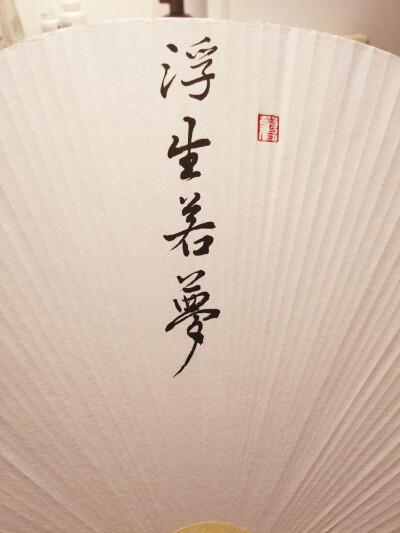 浮生若夢